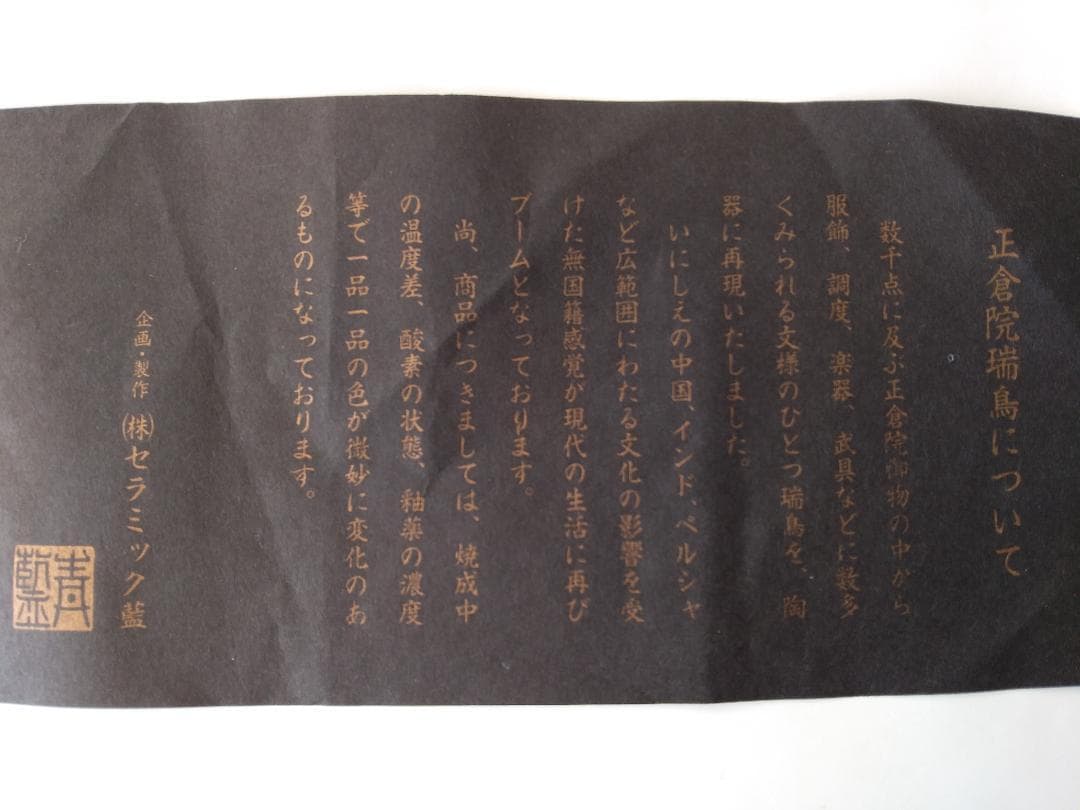 正倉院瑞鳥について
数千点に及ぶ正倉院御物の中から
服飾、調度、楽器、武具などに数多
くみられる文様のひとつ瑞鳥を、陶
器に再現いたしました。
いにしえの中国、インド、ペルシャ
など広範囲にわたる文化の影響を受
けた無国籍感覚が現代の生活に再び
ブームとなっております。
尚、商品につきましては、焼成中
の温度差、酸素の状態、釉薬の濃度
等で一品一品の色が微妙に変化のあ
るものになっております。
企画・製作 ㈱セラミック藍